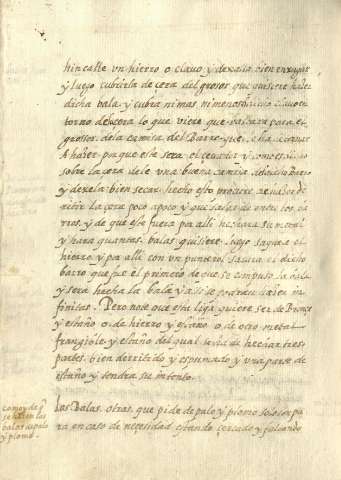 hincalle vn hierro o clavo y dexalla bien enxugar
y luego cubrirla de cera del grosor que quisiere hazer
dicha vala y cubra ni mas ni menos dicho clavo en
torno de cera lo que viere que bastara para el
grossor de la camisa del Barro que
a hazer
sobre la cera dele vna buena camisa de dicho barro
y dexela bien secar hecho esto procure de
ritir la cera poco apoco y que salga de entre los ba
rros, y de que este fuera pa alli hechara su metal
y hara quantas valas quisiere luego saque el
hierro y pa alli con vn puntero, sacara el dicho
barro que fue el primero de que se compuso la bala
y sera hecha la bala y assi se podran hazer in
finitas. Pero note que esta liga quiere ser de Bronze
y estaño o de hierro y estaño o de otro metal
frangible y estaño del qual se ha de hechar tres
partes bien derritido y espumado y vna parte de
estaño y tendra su intento.
como y de q
se hazen las
balas de palo
y plomo.
Las Balas, otras, que pide de palo y plomo solo son pa
ra en caso de necesidad estando cercado y faltando